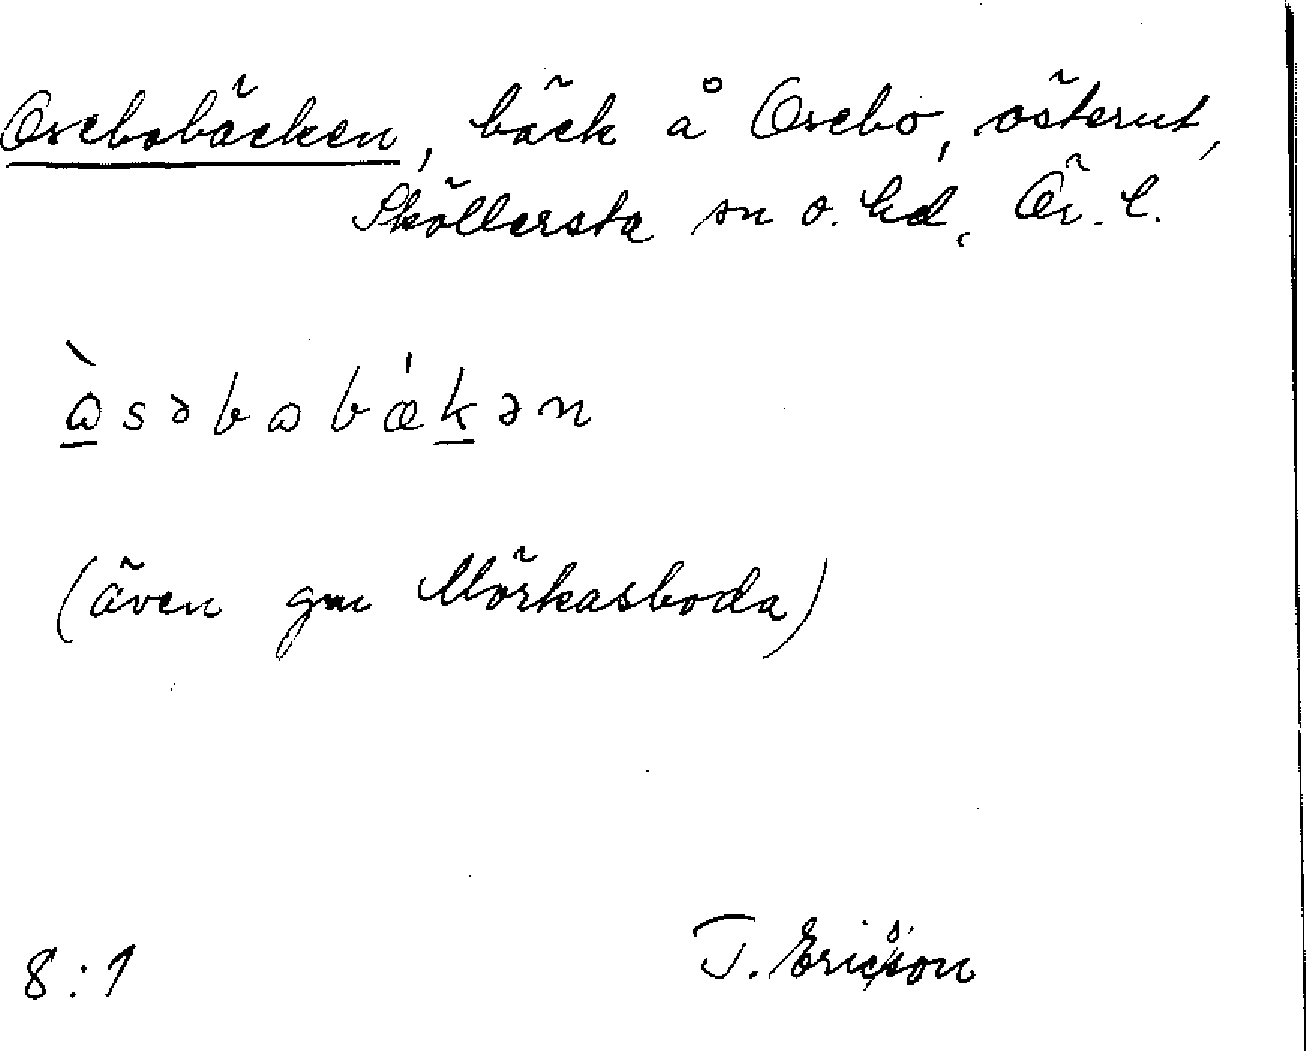 Osebobäcken, bäck å Osebo, österut,
Sköllersta sn o. hd, Ör. l.
òsəbobǽkən
(även gm Mörkasboda)
8:1 T. Ericsson